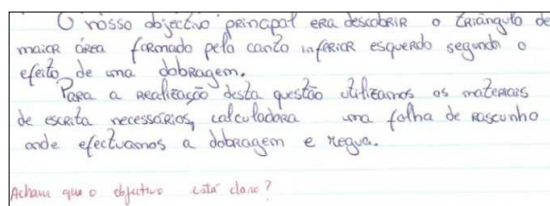 O nosso objectivo principal era descobrir o triângulo de
maior área formado pelo canto inferior esquerdo segundo o
efeito de uma dobragem.
Para a realização desta questão utilizamos os materiais
de escrita necessários, calculadora uma folha de rascunho
onde efectuamos a dobragem e regua.
Acham que o objectivo está claro?